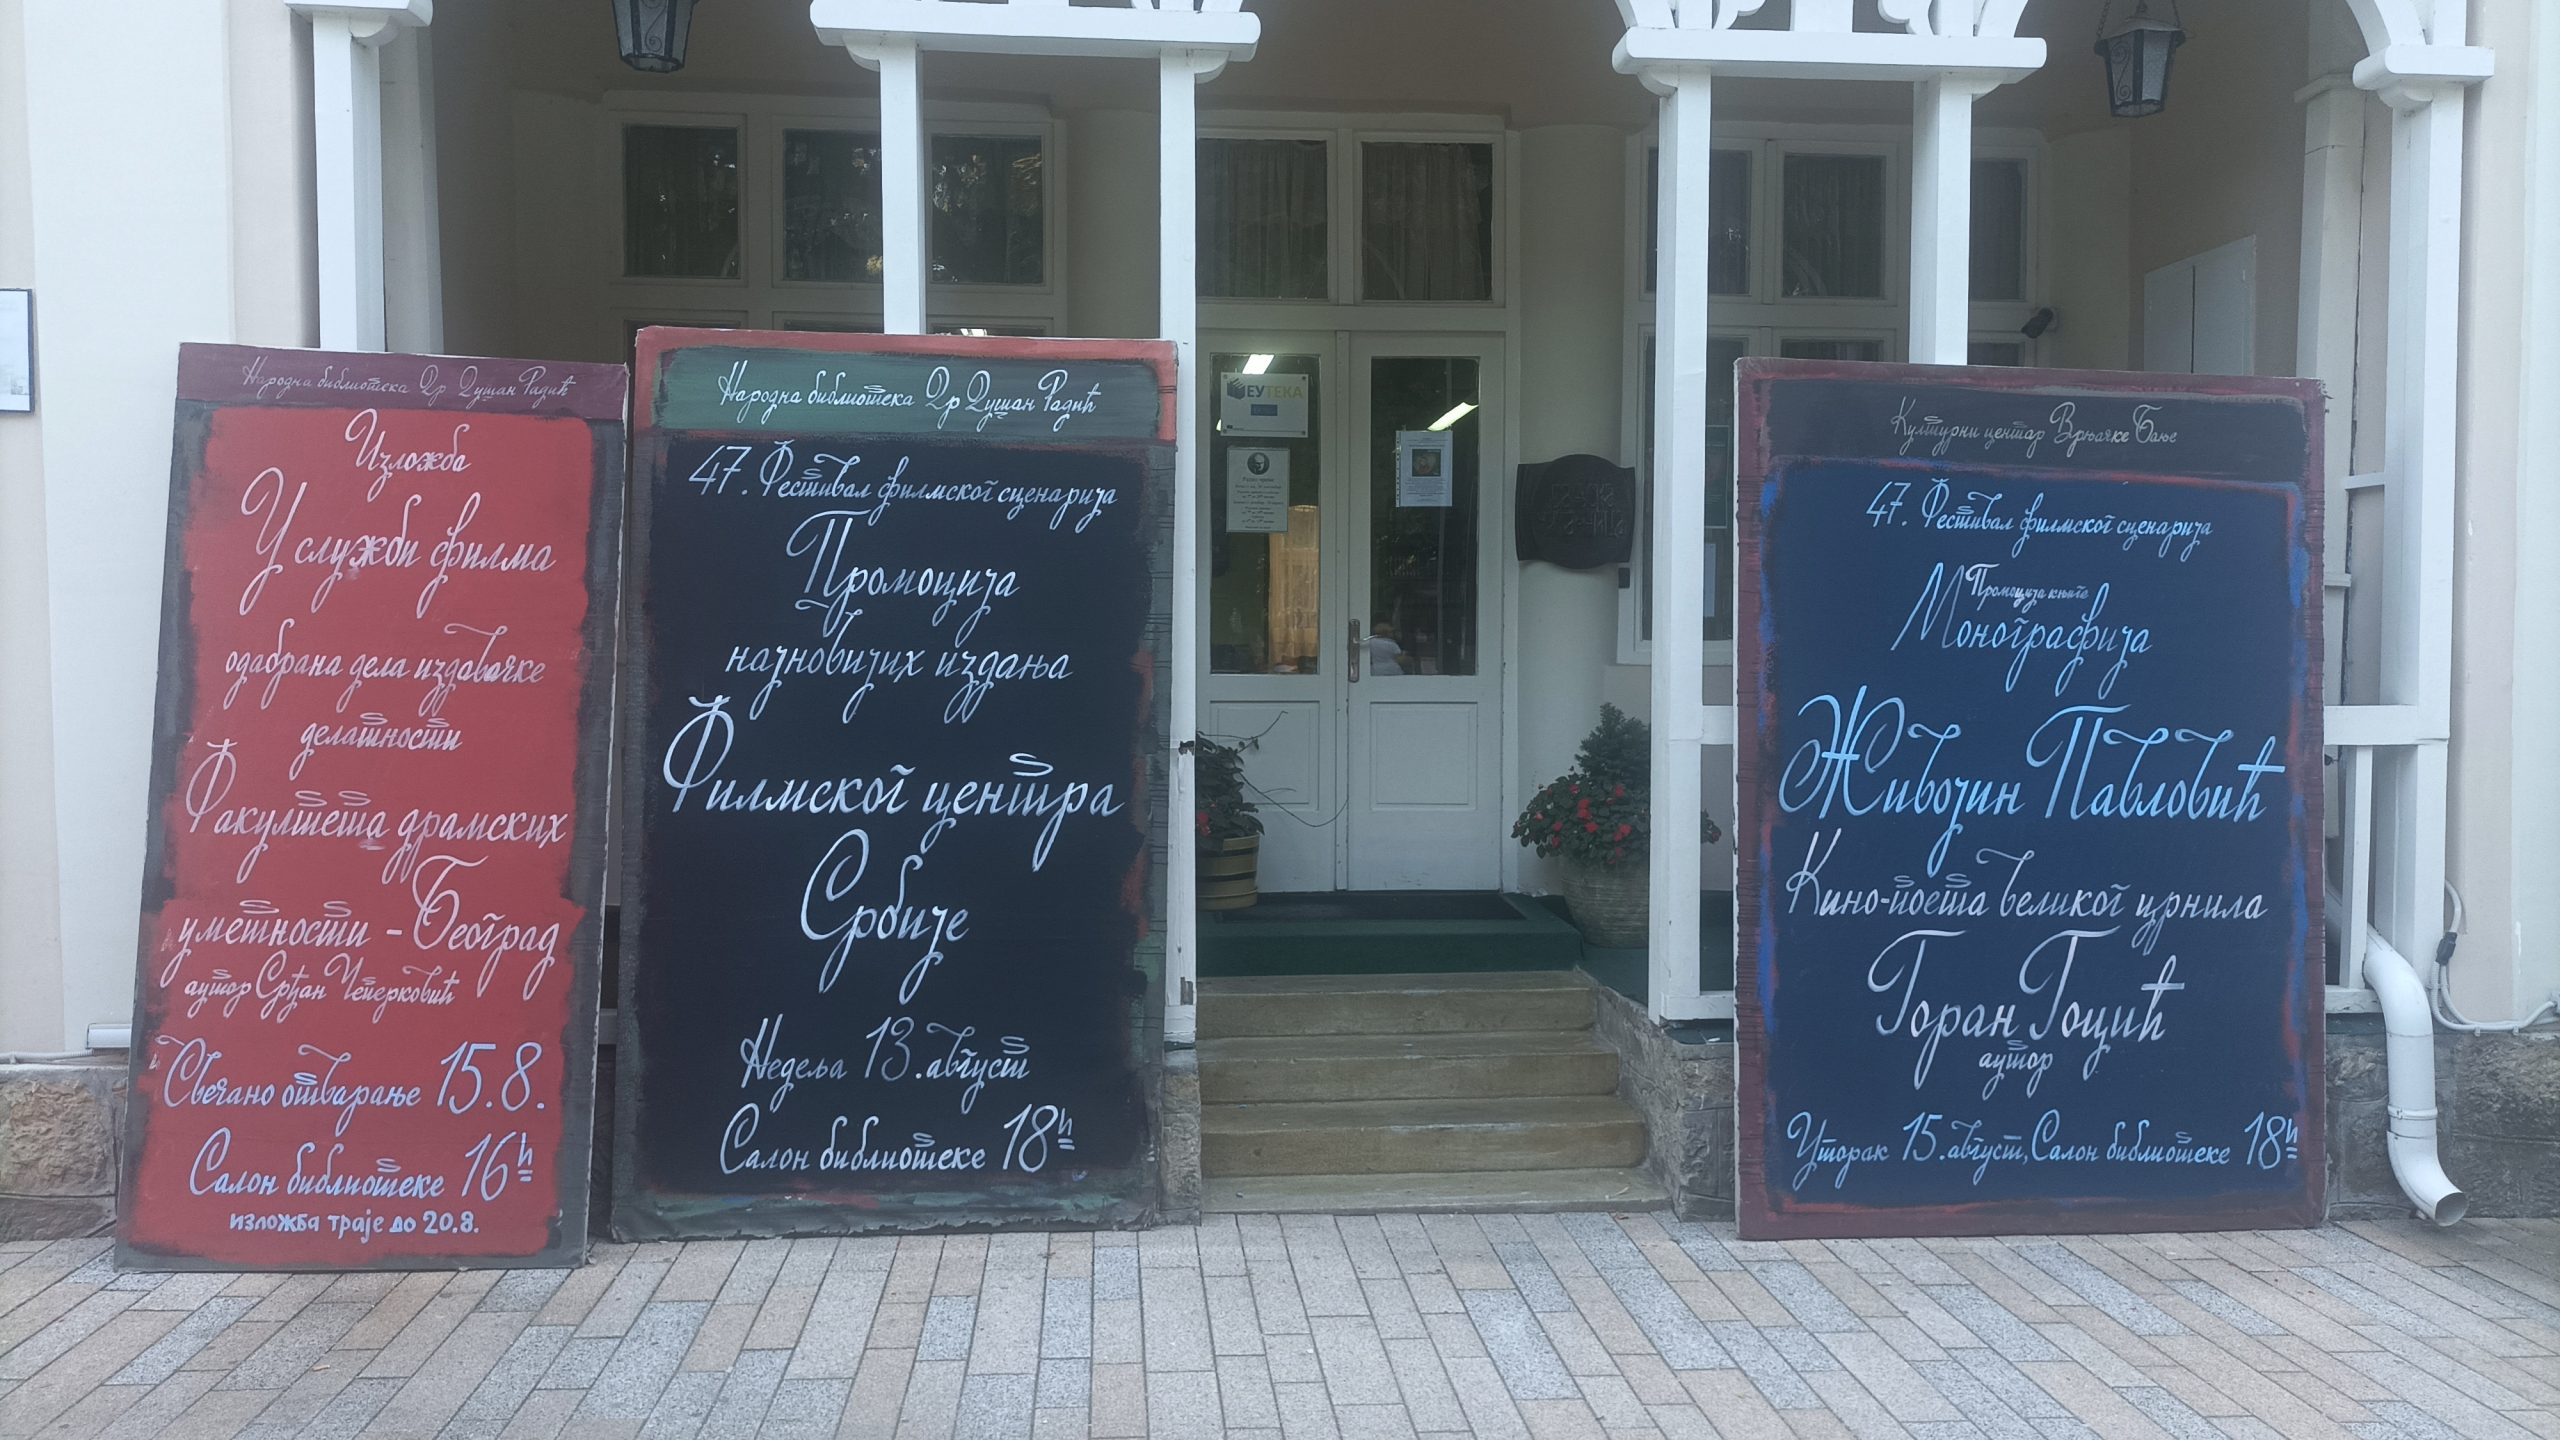 Народна библиотека Др Душан Радић
Изложба
У служби филма
одабрана дела издавачке
делатности
Факултета драмских
уметности - Београд
аутор Срђан Чеперковић
Свечано отварање 15.8.
Салон библиотеке 16h
изложба траје до 20.8.
Народна библиотека Др Душан Радић
47. Фестивал филмског сценарија
Промоција
најновијих издања
Филмског центра
Србије
Недеља 13. август
Салон библиотеке 18h
ЕУТЕКА
Радно време
Културни центар Врњачке Бање
47. Фестивал филмског сценарија
Промоција књиге
Монографија
Живојин Павловић
Кино-поета великог црнила
Горан Гоцић
аутор
Уторак 15. август, Салон библиотеке 18h